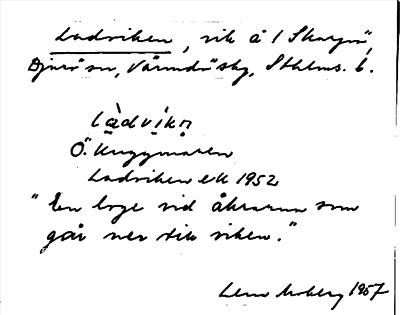 Ladviken, vik å 1 Skarpö,
Djurö sn, Värmdö skg, Sthlms. l.
làdvíkn̥
Ö. Kuggmaren
Ladviken ek 1952
"En loge vid åkrarna som
går ner till viken."
Lena Moberg 1967